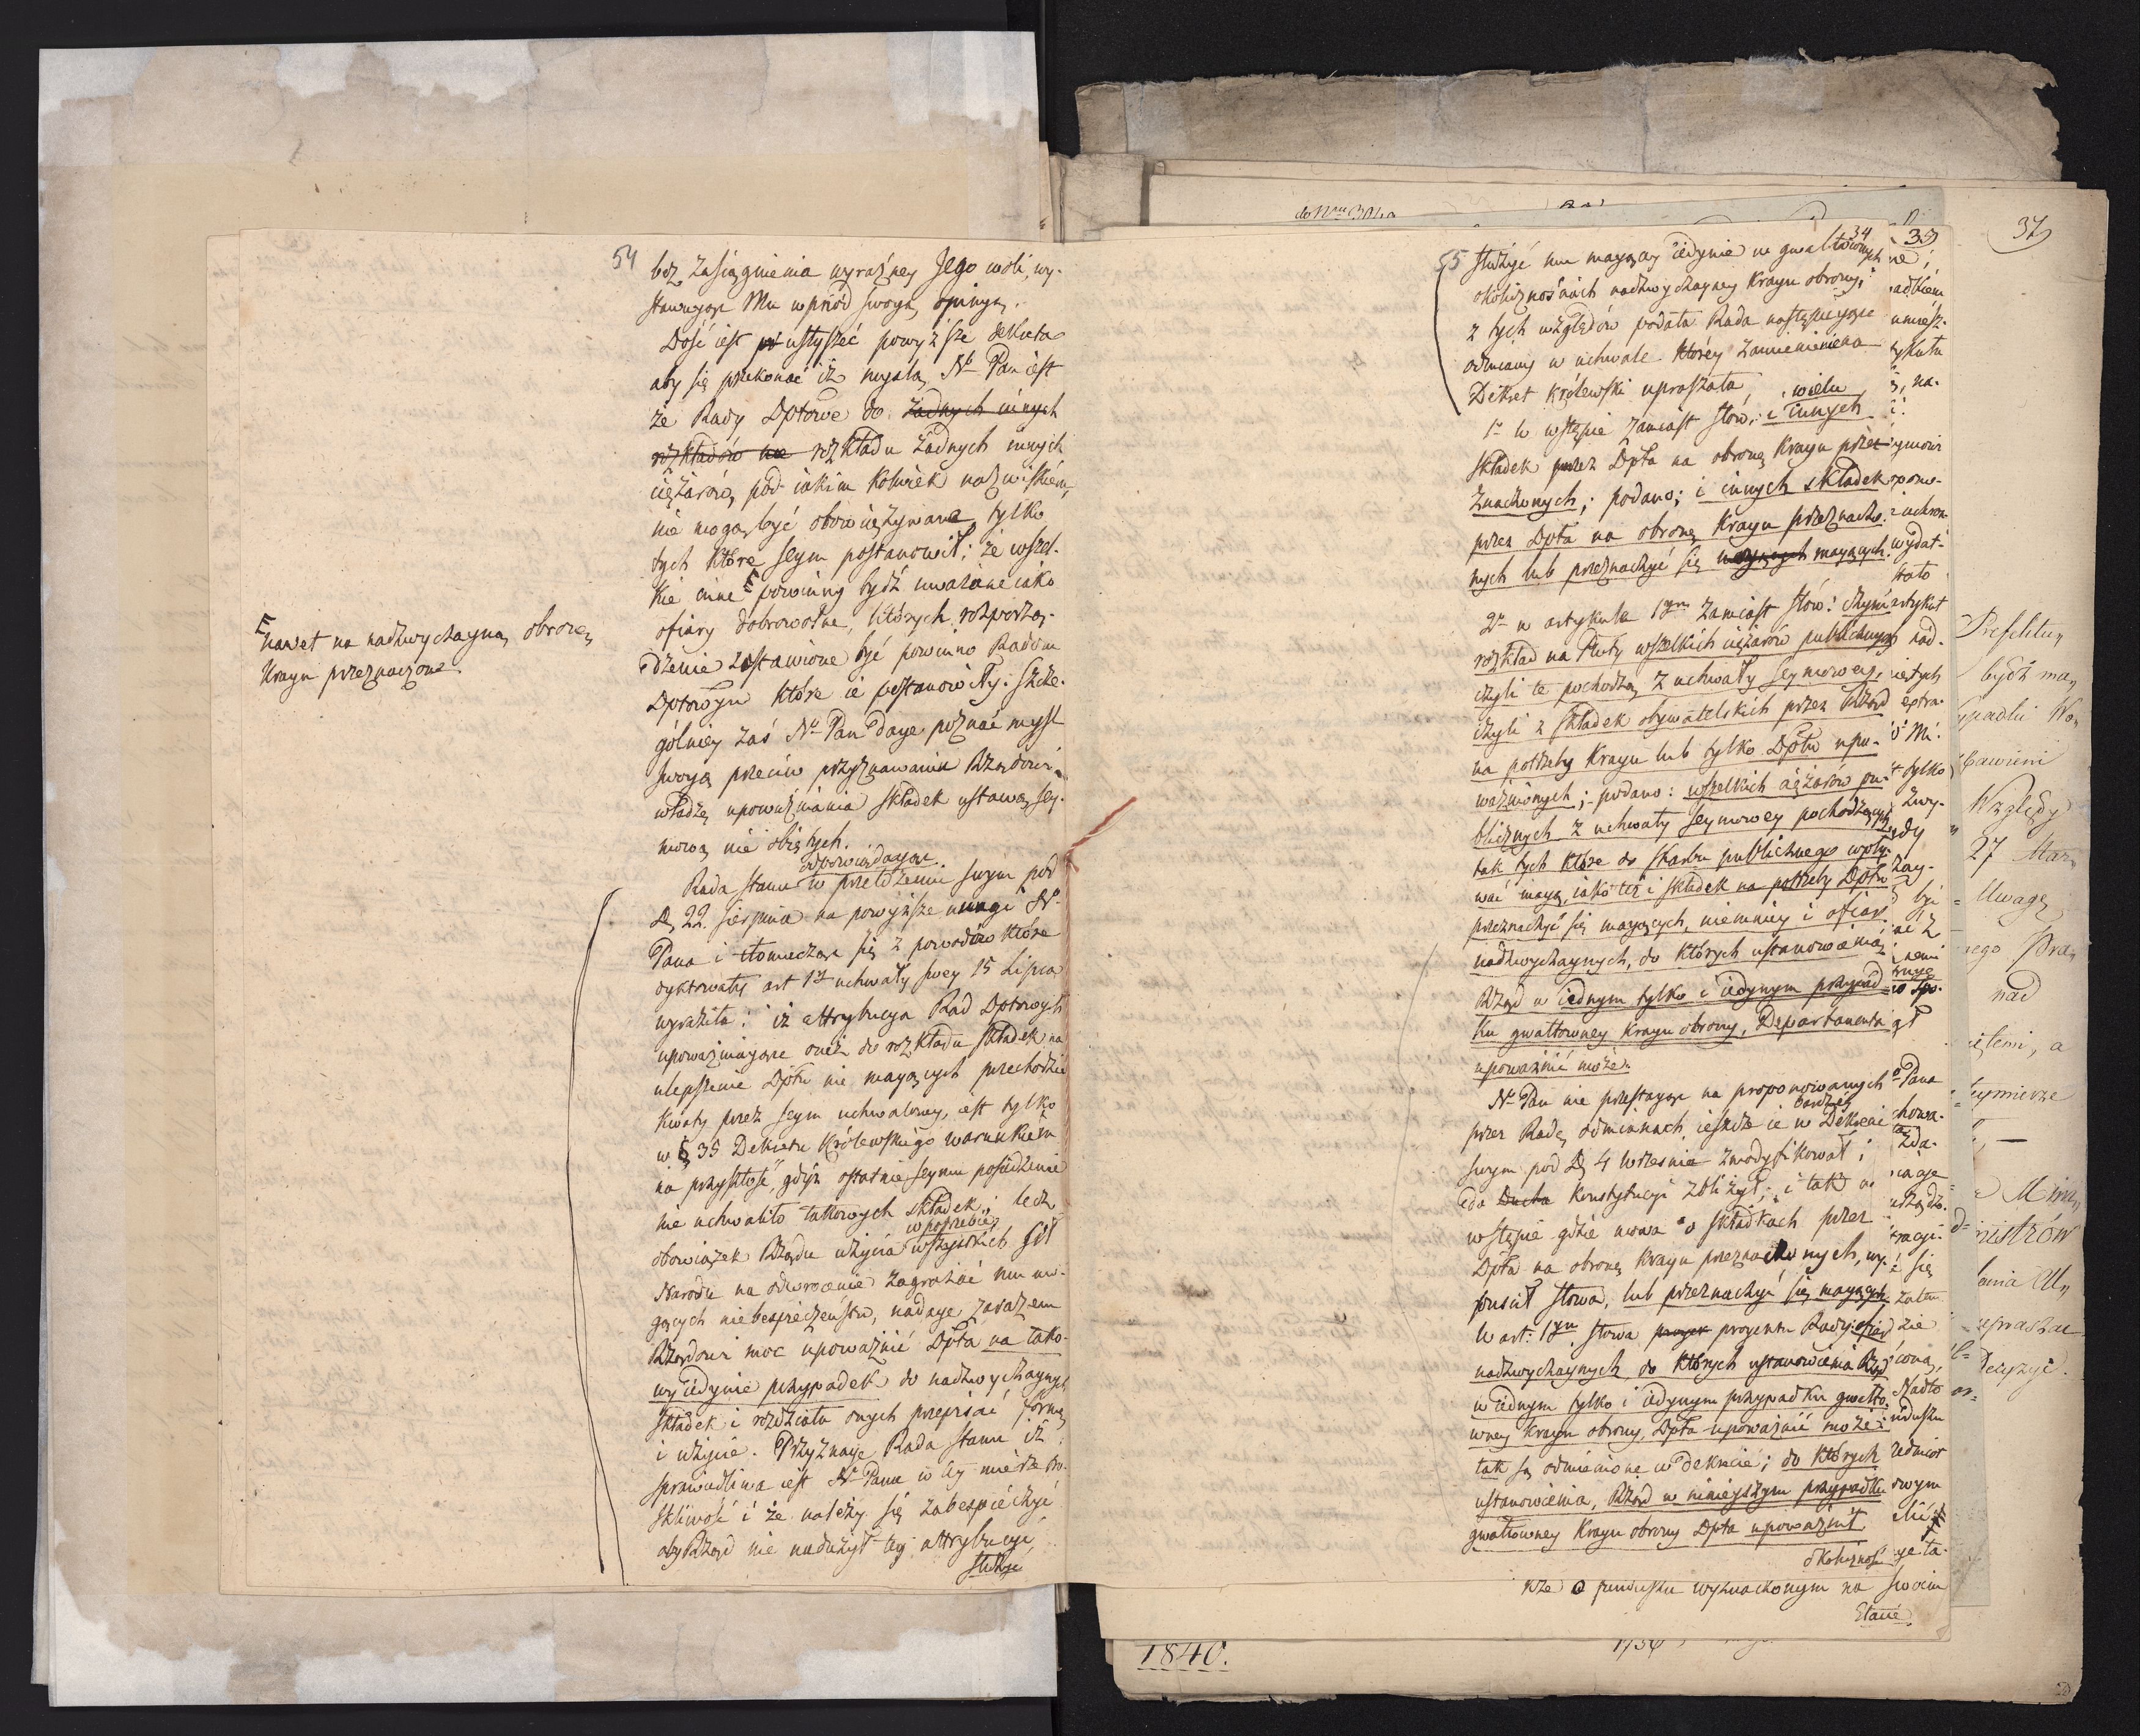 54
bez zasiągnienia wyraźney Jego woli, wy-
stawuiąc Mu wprzód swoyą opinyą.
Dość iest usłyszeć powyższe dekreta
aby się przekonać iż myślą Nº Pana iest
że Rady Dptowe do żadnych innych
rozkładów nie rozkładu żadnych innych
ciężarów, pod iakim kolwiek nazwiskiem,
nie mogą być obowiązywane tylko
tych które Seym postanowił; że wszel-
kie inne powinny bydź uważane iako
ofiary dobrowolne, których rozporzą-
dzenie zostawione być powinno Radom
Dptowym które ie postanowiły. Szcze-
gólniey zaś Nº Pan daye poznać myśl
swoyą przeciw przyznawaniu Rządowi
władzę upoważniania składek ustawą sey-
mową nie obiętych.
nawet na nadzwyczayną obronę
Kraju przeznaczone.
odpowiadając
Rada Stanu w przełożeniu swym pod
D. 22. sierpnia na powyższe uwagi Nº
Pana i tłomacząc się z powodów które
dyktowały art 1º uchwały swey 15 Lipca
wyraziła: iż attrybucya Rad Dptowych
upoważniające oneż do rozkładu składek na
ulepszenie Dptu nie mających przechodzić
kwoty przez Seym uchwaloney, iest tylko
w § 35 Dekretu Królewskiego warunkiem
na przyszłość, gdyż ostatnie Seymu posiedzenie
nie uchwaliło takowych składek; lecz
w potrzebie
obowiązek Rządu użycia wszystkich sił
Narodu na odwrócenie zagrażać mu mo-
gących niebespieczeństw, nadaye zarazem
Rządowi moc upoważnić Dpta na tako-
wy iedynie przypadek do nadzwyczaynych
składek i rozdziału onych przepisać formę
i użycie. Przyznaje Rada Stanu iż
sprawiedliwa iest Nº Pana w tey mierze tro-
skliwość i że należy się zabespieczyć
aby Rząd nie nadużył tey attrybucyi
służyć
55
34
służyć mu maiącey iedynie w gwałtownych
okolicznościach nadzwyczayney Kraju obrony;
z tych względów podała Rada następujące
odmiany w uchwale którey zamienienia
Dekret Królewski upraszała
wielu
1º w wstępie zamiast słów: i innych
składek przez Dpta na obronę Kraju prze-
znaczonych; podano; i innych składek
przez Dpta na obronę Kraju przeznaczo-
nych lub przeznaczyć się mających.
2º w artykule 1ym zamiast słów: czynić
rozkład na Pwty wszelkich ciężarów publicznych
czyli te pochodzą z uchwały Seymowey,
czyli z składek obywatelskich przez Rząd
na potrzeby Kraju lub tylko Dptu upo-
ważnionych; podano: wszelkich ciężarów pu-
blicznych z uchwały Seymowey pochodzących
tak tych które do Skarbu publicznego wpły-
wać mają, iako też i składek na potrzeby Dptu
przeznaczyć się mających, niemniey i ofiar
nadzwyczaynych, do których ustanowienia
Rząd w iednym tylko i iedynym przypad-
ku gwałtowney Kraju obrony, Departamenta
upoważnić może.
Nº Pan nie przestając na proponowanych
bardziéy
przez Radę odmianach ieszcze ie w Dekrecie
swym pod D. 4 Wrzesnia zmodyfikował i
do Ducha Konstytucyi zbliżył; i tak w
wstępie gdzie mowa o składkach przez
Dpta na obronę Kraju przeznaczonych, wy-
puścił słowa, lub przeznaczyć się mających.
W art: 1ym słowa projektu Rady: ofiar
nadzwyczaynych, do których ustanowienia Rząd
w iednym tylko i iedynym przypadku gwałto-
wney Kraju obrony, Dpta upoważnić może:
tak są odmienione w dekrecie; do których
ustanowienia, Rząd w niniejszym przypadku
gwałtowney Kraju obrony Dpta upoważnił.
okoliczność
kże o funduszu wyznaczonym na swoim
Etacie
35
37
Prefektu,
bydź ma,
Względy
27 Mar
Uwagę
nad
1840.